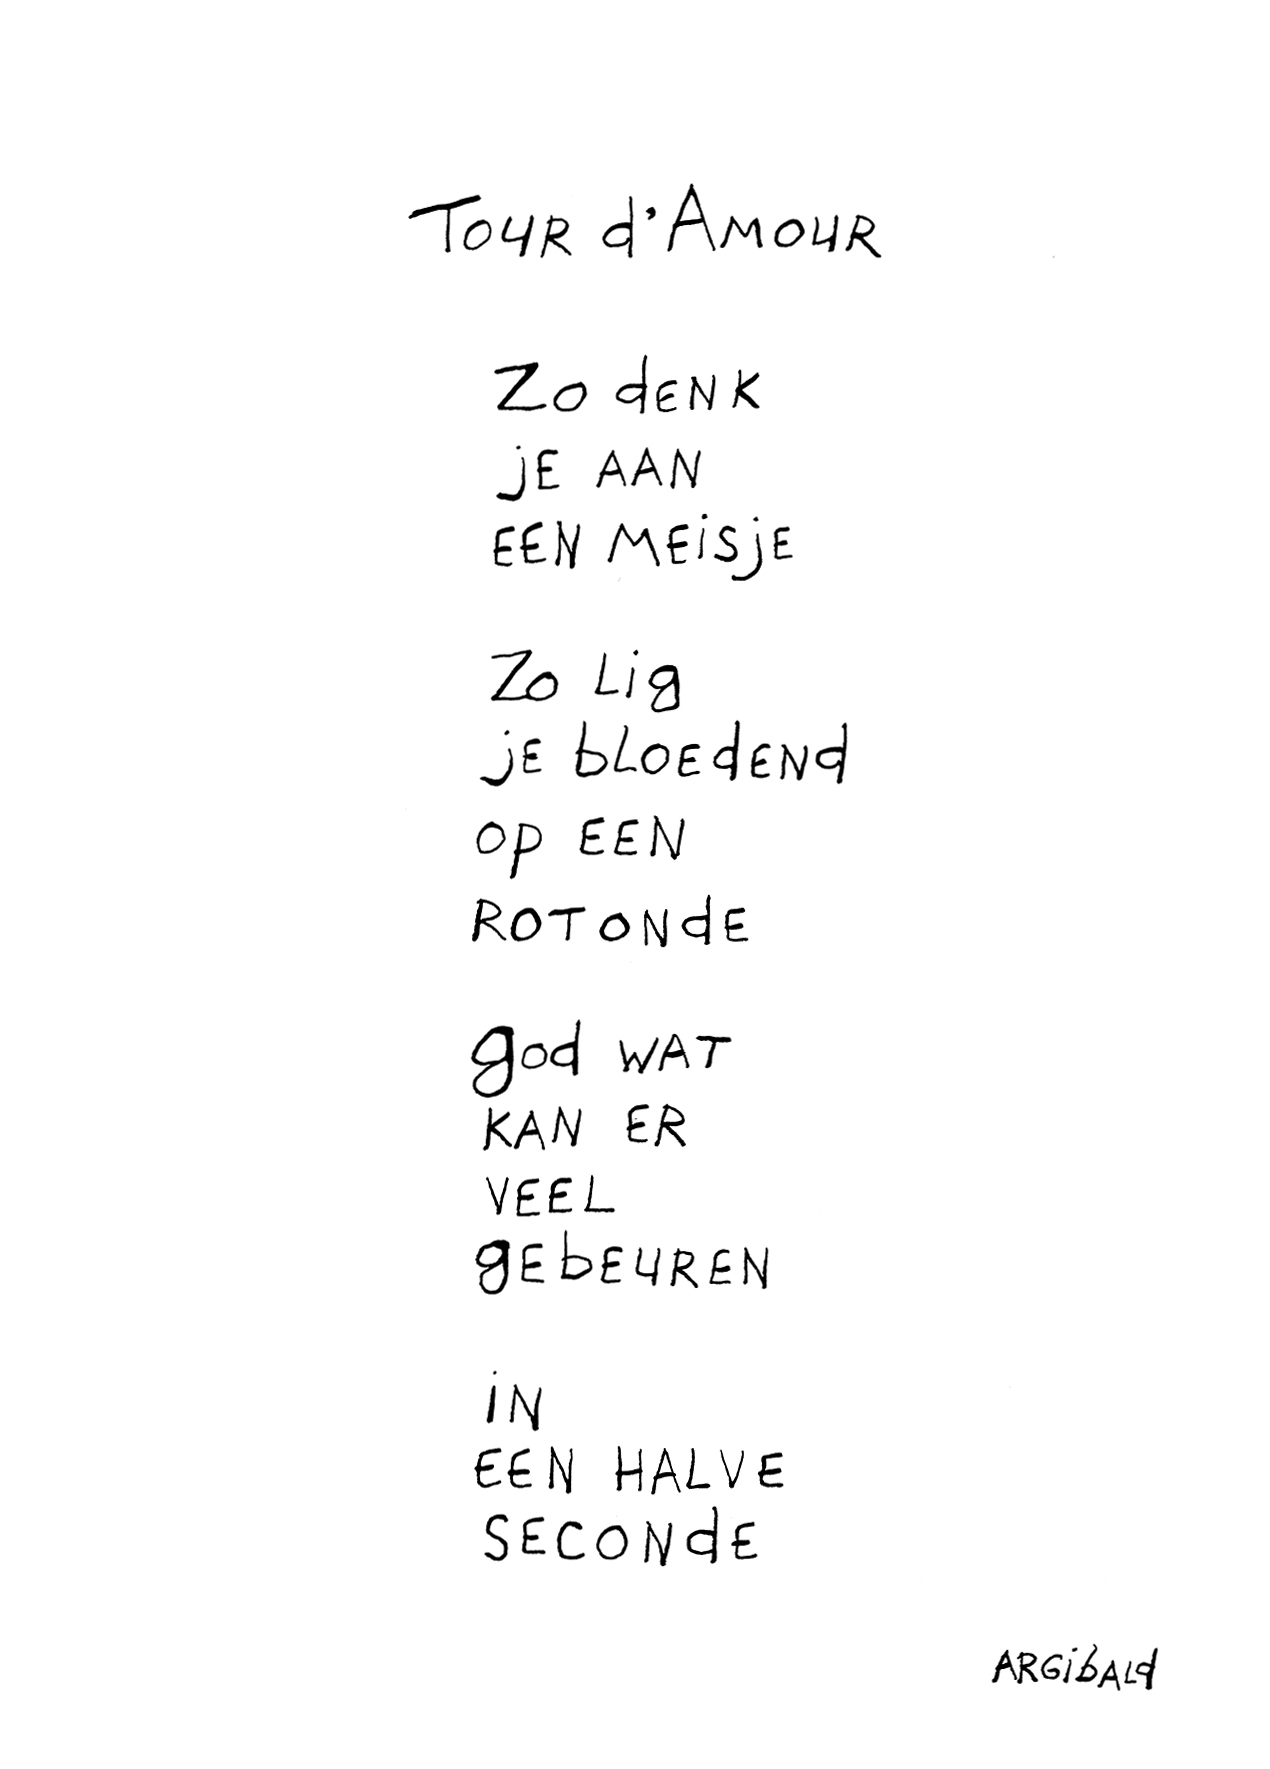 Tour d'Amour
Zo denk
je aan
een meisje
Zo lig
je bloedend
op een
rotonde
god wat
kan er
veel
gebeuren
in
een halve
seconde
Argibald